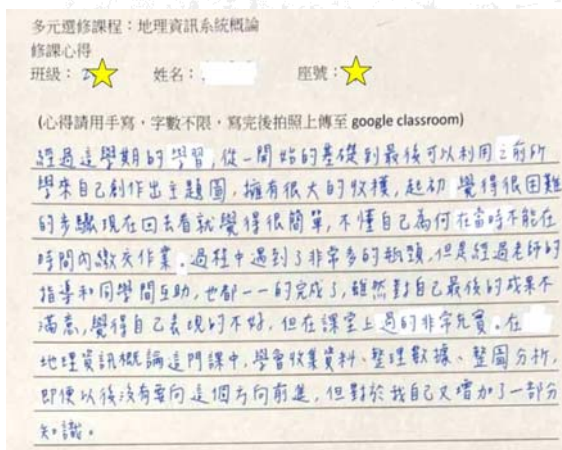 多元選修課程：地理資訊系統概論
修課心得
班級：2
姓名：
座號：
(心得請用手寫，字數不限，寫完後拍照上傳至 google classroom)
經過這學期的學習，從一開始的基礎到最後可以利用之前所
學來自己創作出主題圖，擁有很大的收穫，起初覺得很困難
的步驟現在回去看就覺得很簡單，不懂自己為何在當時不能在
時間內繳交作業。過程中遇到了非常多的瓶頸，但是經過老師的
指導和同學間互助，也都一一的完成了，雖然對自己最後的成果不
滿意，覺得自己表現的不好，但在課堂上過的非常充實。在
地理資訊概論這門課中，學會收集資料、整理數據、整圖分析，
即便以後沒有要向這個方向前進，但對於我自己又增加了一部分
知識。